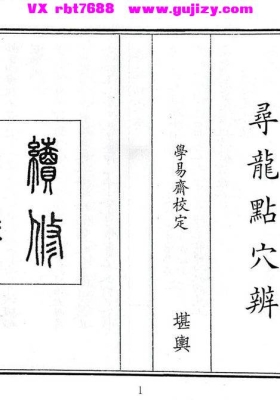 VX rbt7688 www.gujizy.com
尋龍點穴辨
學易齋校定
堪輿
續修
1